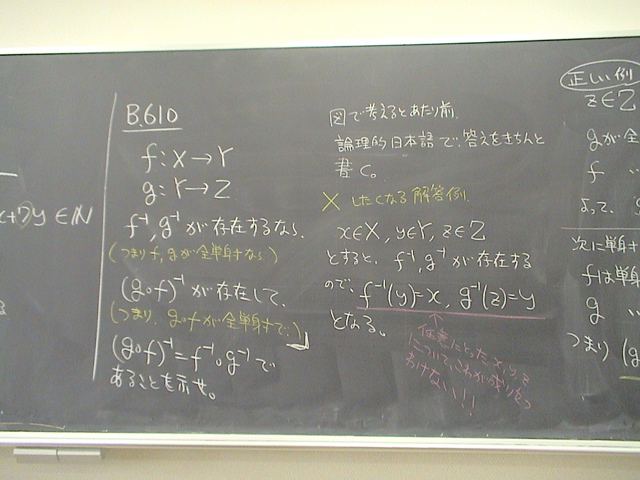 x+7y ∈ ℕ
B.610
f: X → Y
g: Y → Z
f⁻¹, g⁻¹ が存在するなら、
(つまり f, g が全単射なら)
(g∘f)⁻¹ が存在して、
(つまり、g∘f が全単射で)
(g∘f)⁻¹ = f⁻¹∘g⁻¹ で
あることを示せ。
図で考えるとあたり前。
論理的日本語で、答えをきちんと
書く。
× したくなる解答例.
x∈X, y∈Y, z∈Z
とすると、f⁻¹, g⁻¹ が存在する
ので、f⁻¹(y)=x, g⁻¹(z)=y
となる。
↑
任意にとったx,y,z
について、これが成り立つ
わけない!!
正しい例
z∈Z
gが全
f 〃
よって、
次に単射
fは単射
g 〃
つまり (g